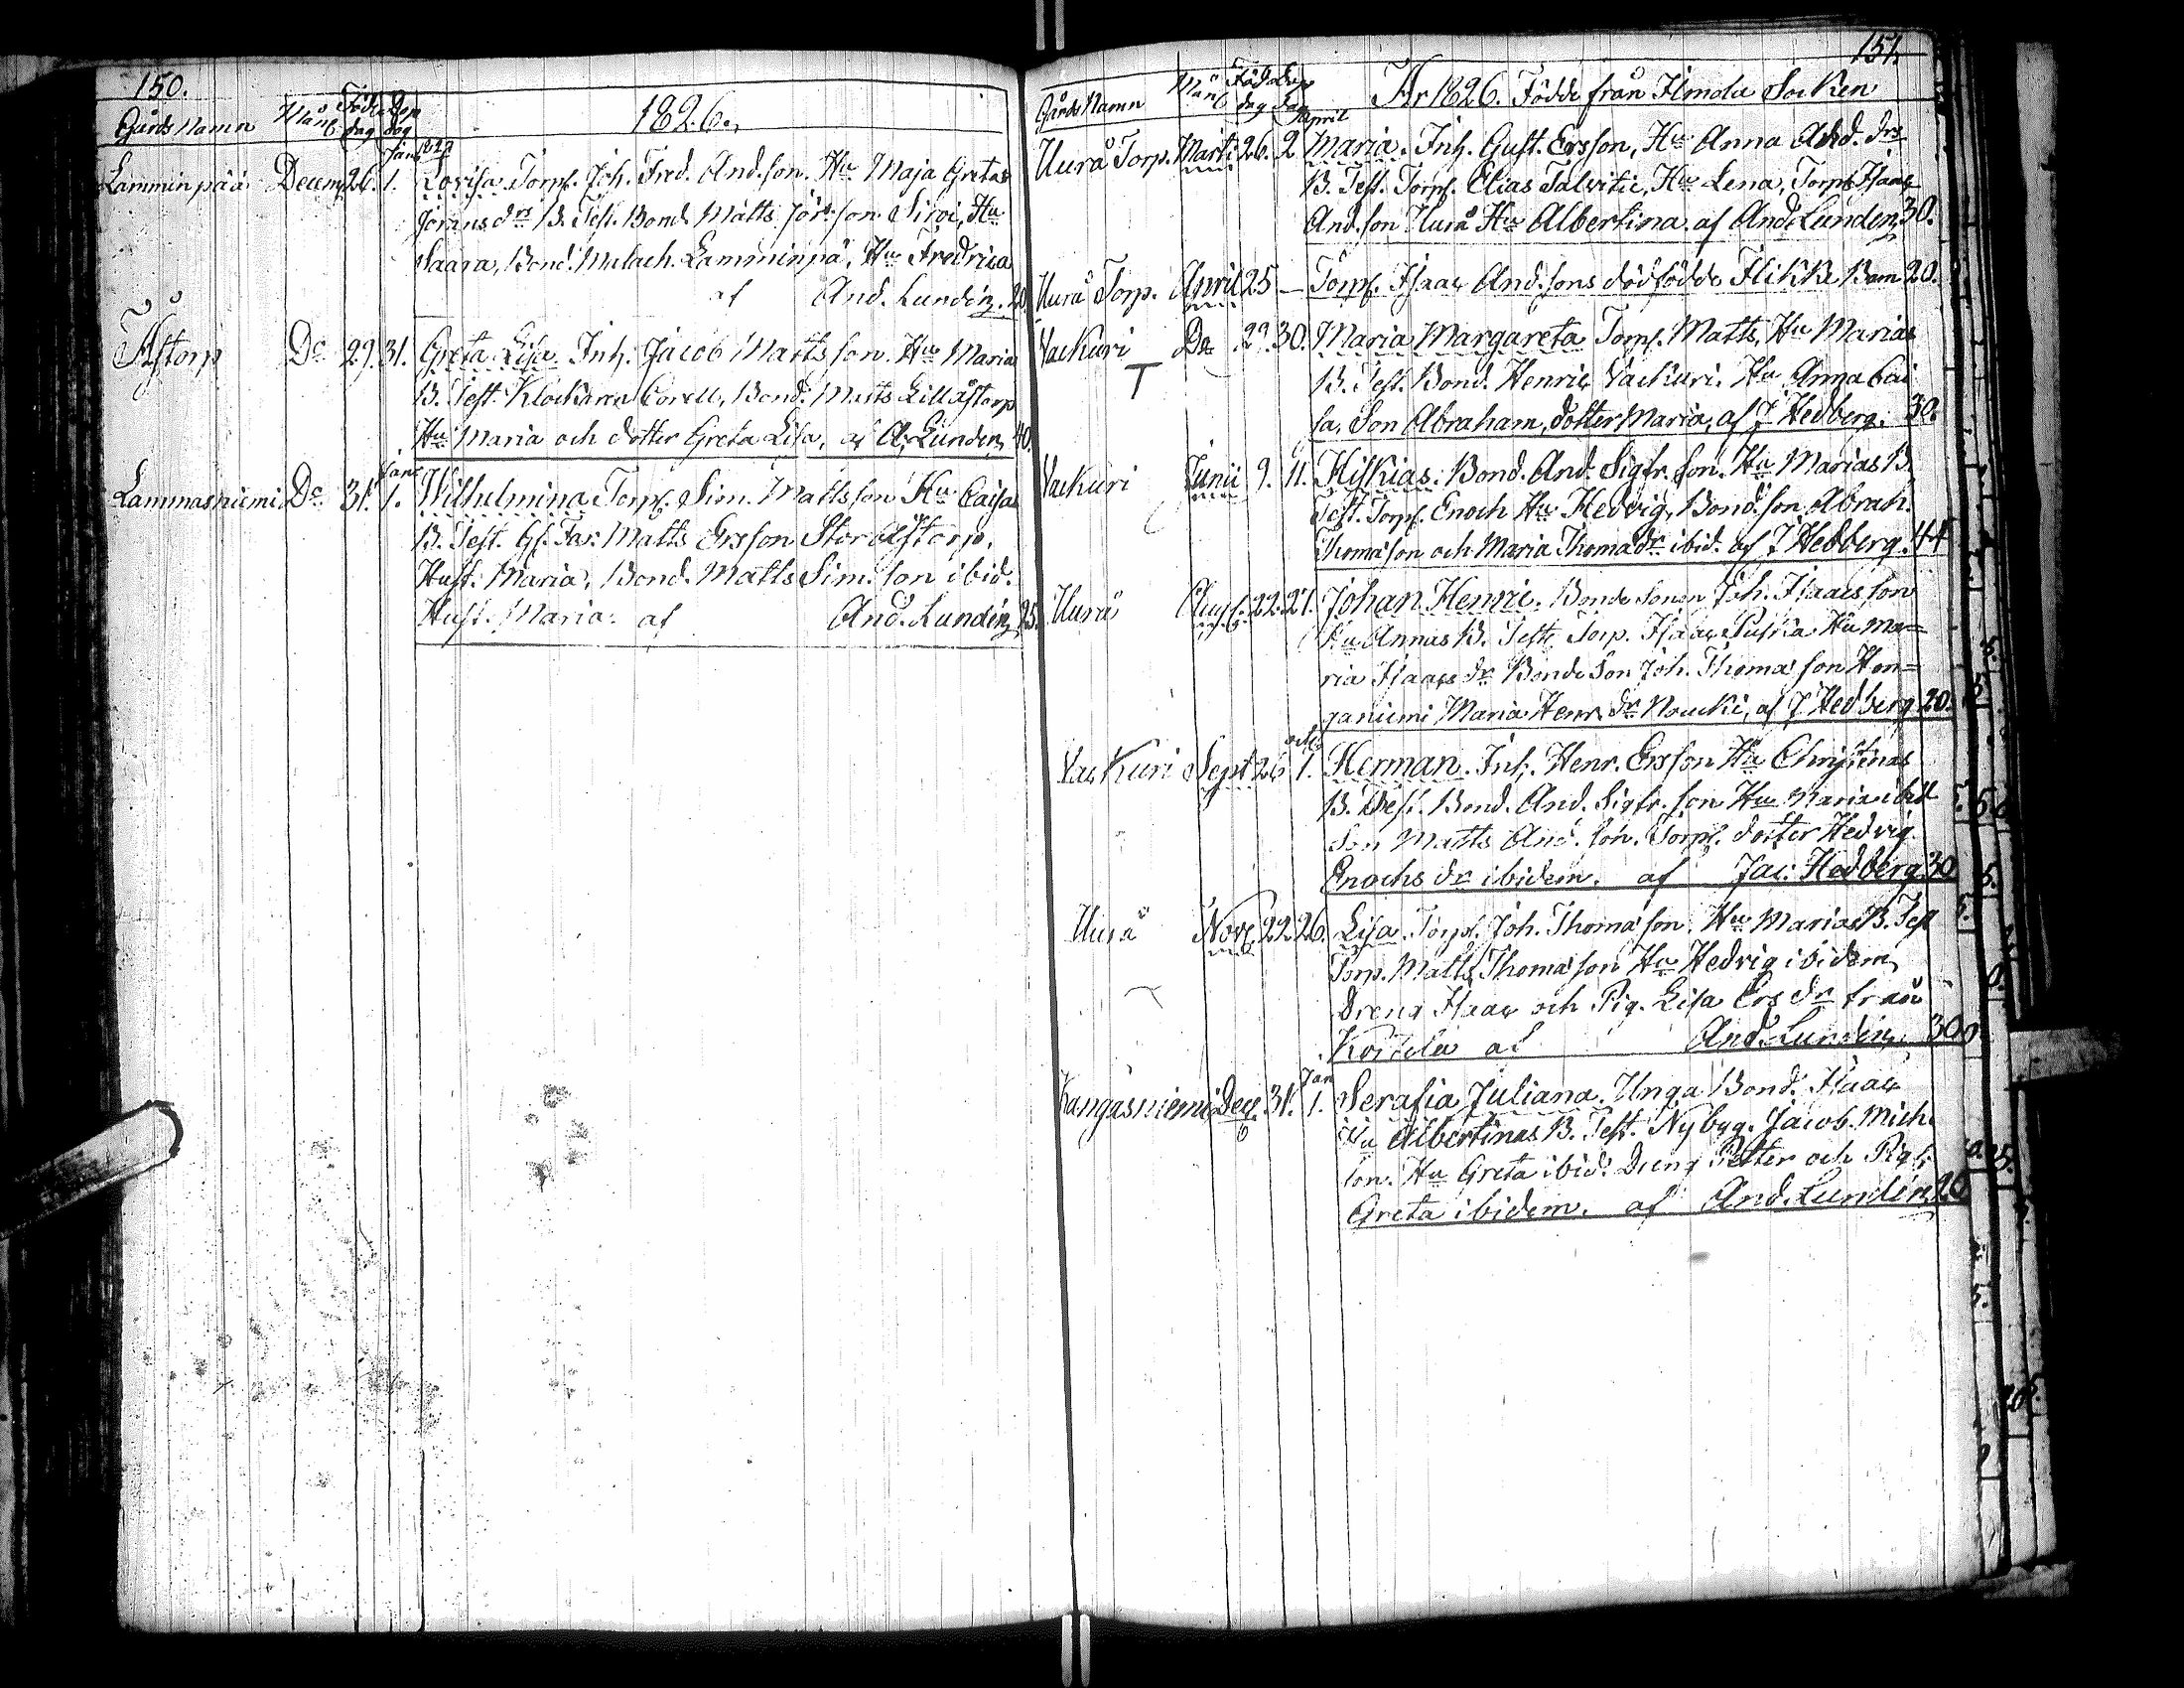 150.
Gårds Namn Mån. Föd. dag Döp dag 1826.
Jan. 1827
Lamminpää Decem. 26. 1. Lovisa. Torp. Joh. Fred. And.son. Hu Maja Gretas
Jörans drs B. Test. Bond. Matts Jör.son Sirvi, Hu
Saara, Bond. Malach. Lamminpä, Hu Fredrica
af And. Lundén. 20.
Åstorp Do 29. 31. Greta Lisa. Inh. Jacob Mattsson. Hu Maria
B. Test. Klockaren Corell, Bond. Matts Lillåstorp
Hu Maria och dotter Greta Lisa, af A. Lundén 40.
Jan.
Lammasniemi Do 31. 1. Wilhelmina Torp. Sim. Mattsson Hu Caisa
B. Test. Gf. Far: Matts Ersson Storåstorp,
Hust. Maria, Bond. Matts Sim.son ibid.
Hust. Maria. af And. Lundén 25.
151.
Gårds Namn Mån. Föd. dag Döp dag År 1826. Födde från Ilmola Socken
April
Uurå Torp. Marti 26. 2 Maria. Inh. Gust. Ersson, Hu Anna And. drs
B. Test. Torp. Elias Talvitie, Hu Lena, Torp. Isaac
And.son Uurå Hu Albertina. af And. Lundén, 30.
Uurå Torp. April 25 — Torp. Isaac And.sons dödfödde Flikke Barn 20.
Vackuri Do 29. 30. Maria Margareta Torp. Matts, Hu Marias
T B. Test. Bond. Henric Vackuri. Hu Anna Cai
sa, Son Abraham, dotter Maria, af J Hedberg. 30.
Vackuri Junii 9. 11. Hiskias. Bond. And. Sigfr.son. Hu Marias B.
Test. Torp. Enoch Hu Hedvig, Bond.son Abrah.
Thomasson och Maria Thomadr ibid. af J Hedberg. 44
Uurå Aug. 22. 27. Johan Henric. Bonde Sonen Joh. Isaacsson
Hu Annas B. Test. Torp. Isaac Hu Ma=
ria Isaacs dr Bonde Son Joh. Thomasson Hon=
ganiemi Maria Henr. dr af J Hedberg 20.
octb
Vackuri Sept 26 1. Herman. Inh. Henr. Ersson Hu Christinas
B. Test. Bond. And. Sigfr.son Hu Maria ibid
Son Matts And.son. Torp. dotter Hedvig
Enochs dr ibidem. af Jac. Hedberg 30
Uurå Nov. 22. 26. Lisa. Torp. Joh. Thomasson. Hu Marias B. Test
Torp. Matts Thomasson Hu Hedvig ibidem,
Dreng Isaac och Pig. Lisa Ers dr från
Koskela af And. Lundén. 30
Jan
Kangasniemi Dec. 31. 1. Serafia Juliana. Unga Bond. Isaac
Hu Albertinas B. Test. Nybyg. Jacob. Mich.
son. Hu Greta ibid. Dreng Petter och Pig.
Greta ibidem. af And. Lundén 20